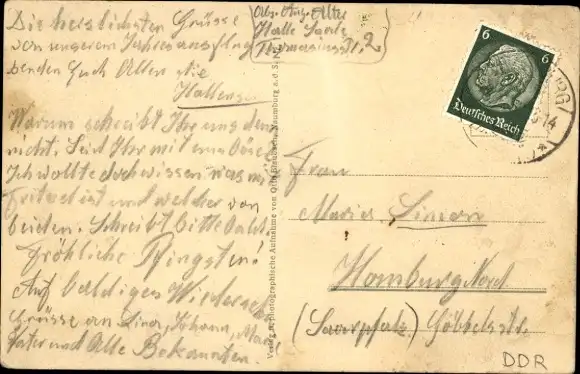 Die herzlichsten Grüsse
von unserem Jahresausflug
senden Euch Allen die
Hallenser
Warum schreibt Ihr uns denn
nicht. Seid Ihr mit uns böse?
Ich wollte doch wissen was mit
ist und welcher von
beiden. Schreibt bitte bald.
Fröhliche Pfingsten!
Auf baldiges Wiedersehn
Grüsse an Lina, Johana,
Vater und Alle Bekannten.
Abs. Aug. Alter
Halle Saale
Thomasiusstr. 2
Verlag u. photographische Aufnahme von Naumburg a. d. S.
6 6
Deutsches Reich
Frau
Maria Simon
Homburg Nord
(Saarpfalz) Göbbelsstr.
DDR